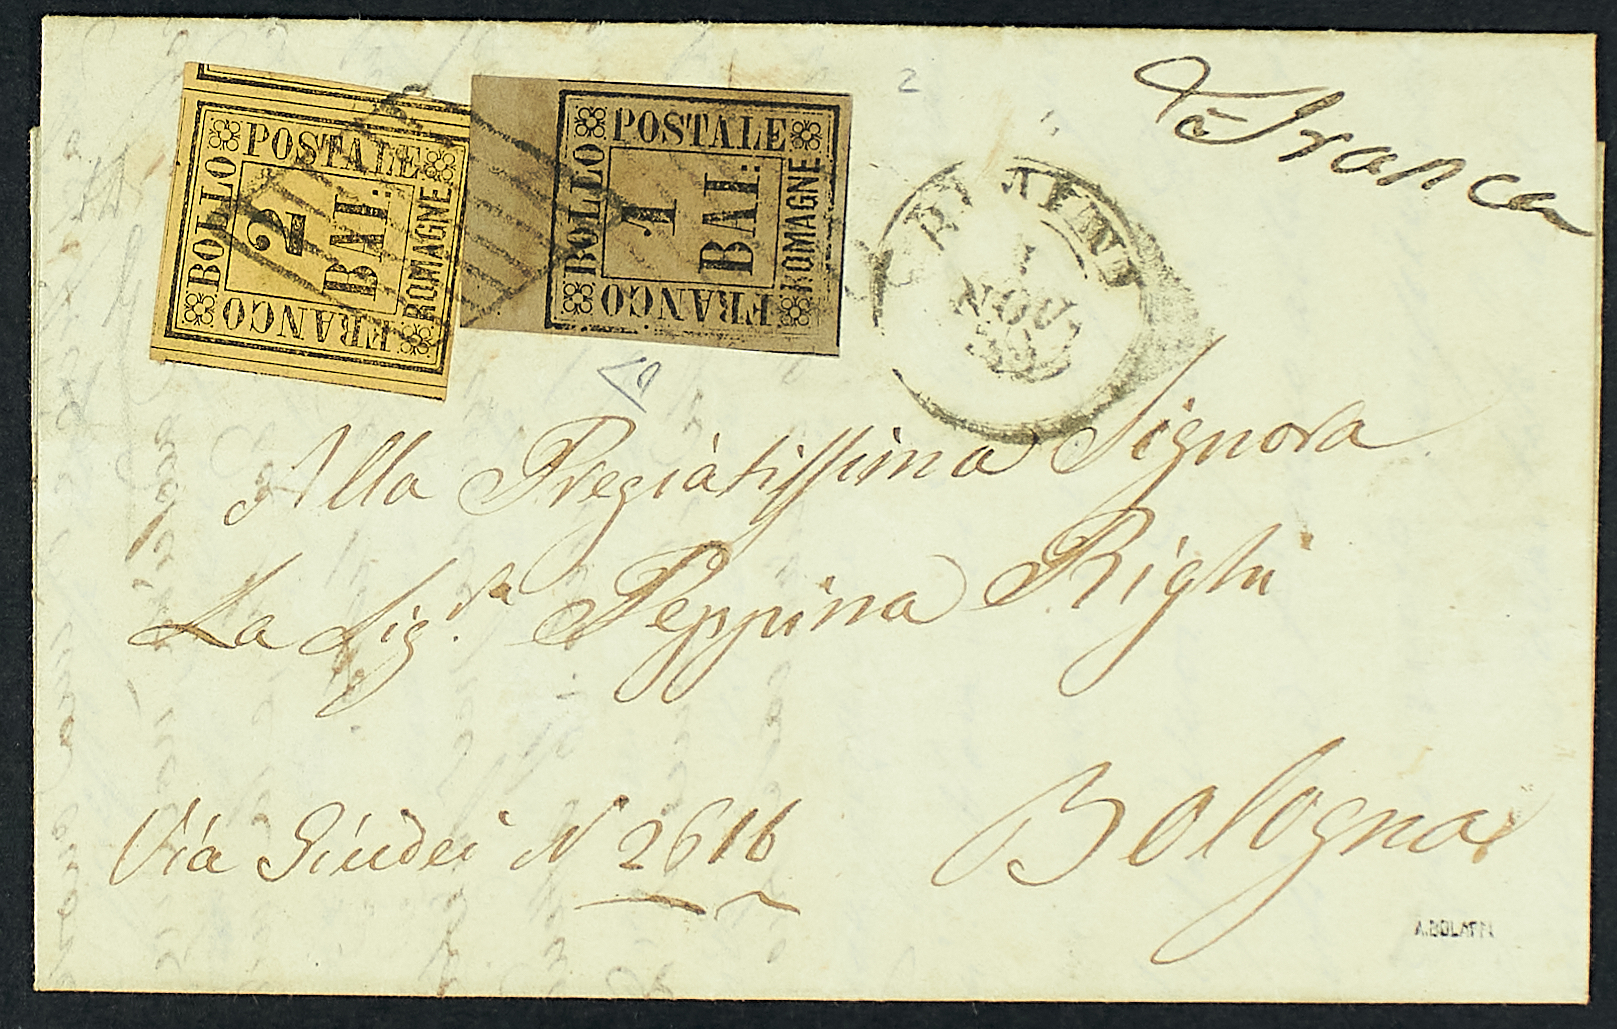 POSTALE
BOLLO
2
BAI:
ROMAGNE
FRANCO
POSTALE
BOLLO
1
BAI:
ROMAGNE
FRANCO
2
Franca
1
NOV
59
Alla Pregiatissima Signora
La Sig.ra Peppina Righi
Via Giudei N 2616
Bologna
A. BOLAFFI